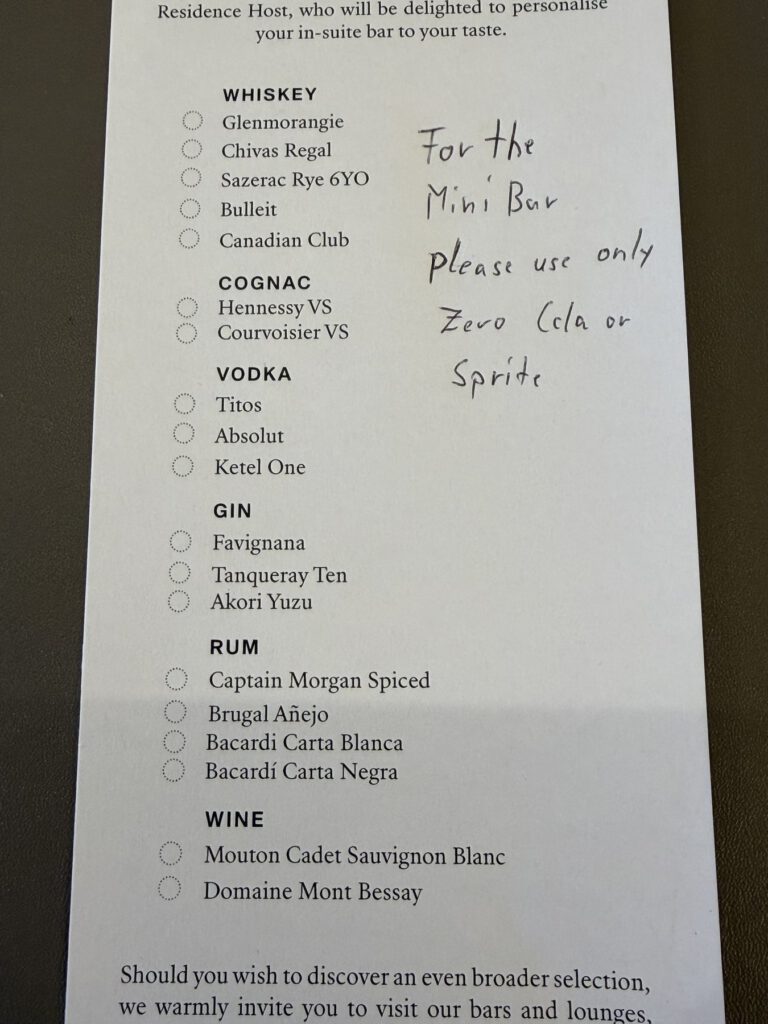 Residence Host, who will be delighted to personalise
your in-suite bar to your taste.
WHISKEY
Glenmorangie
Chivas Regal
Sazerac Rye 6YO
Bulleit
Canadian Club
COGNAC
Hennessy VS
Courvoisier VS
VODKA
Titos
Absolut
Ketel One
GIN
Favignana
Tanqueray Ten
Akori Yuzu
RUM
Captain Morgan Spiced
Brugal Añejo
Bacardi Carta Blanca
Bacardí Carta Negra
WINE
Mouton Cadet Sauvignon Blanc
Domaine Mont Bessay
Should you wish to discover an even broader selection,
we warmly invite you to visit our bars and lounges,
For the
Mini Bar
please use only
Zero Cola or
Sprite